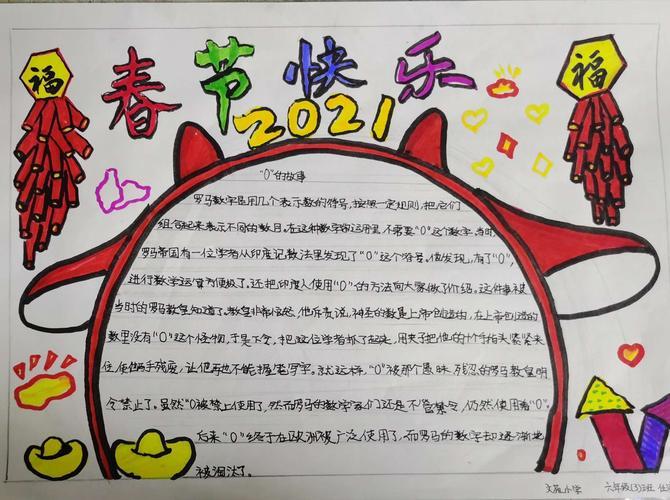 春节快乐
2021
福
福
"0"的故事
罗马数字是用几个表示数的符号,按照一定规则,把它们
组合起来表示不同的数目。在这种数字的运用里,不需要"0"这个数字。当时,
罗马帝国有一位学者从印度记数法里发现了"0"这个符号。他发现,有了"0",
进行数学运算方便极了。还把印度人使用"0"的方法向大家做了介绍。这件事被
当时的罗马教皇知道了。教皇非常恼怒,他斥责说,神圣的数是上帝创造的,在上帝创造的
数里没有"0"这个怪物,于是下令,把这位学者抓了起来,用夹子把他的十个手指头紧紧夹
住,使他两手残废,让他再也不能握笔写字。就这样,"0"被那个愚昧、残忍的罗马教皇明
令禁止了。虽然"0被禁止使用了,然而罗马的数学家们还是不管禁令,仍然使用着"0"。
后来"0"终于在欧洲被广泛使用了,而罗马的数字却逐渐地
被淘汰了。
小学 六年级(3)班